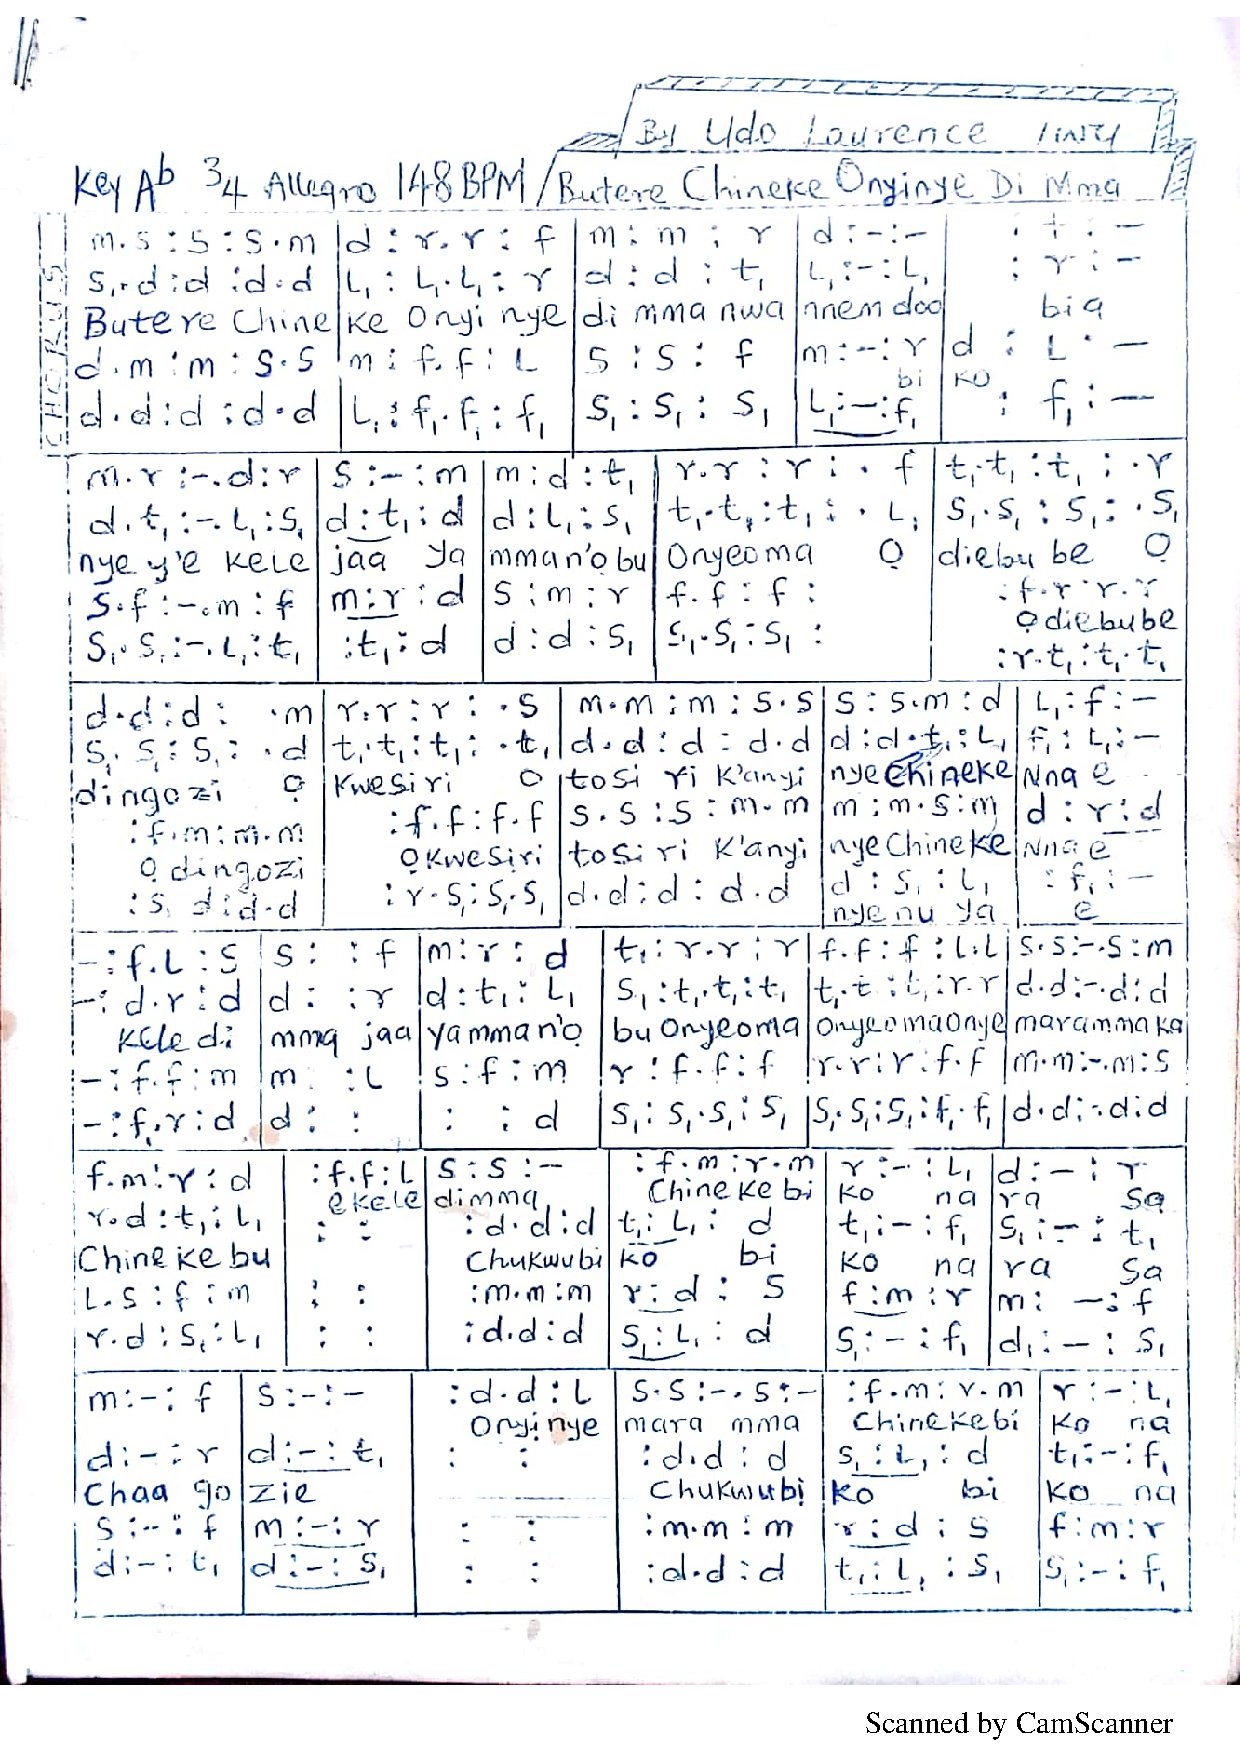 By Udo Laurence
Key Ab 3/4 Allegro 148 BPM / Butere Chineke Onyinye Di Mma
CHORUS
m.s : s : s.m | d : r.r : f | m : m : r | d : - : - | : r : -
s₁.d : d : d.d | L₁ : L₁.L₁ : r | d : d : t₁ | L₁ : - : L₁ | : r : -
Butere Chine | ke Onyi nye | di mma nwa | nnem doo | bia
d.m : m : s.s | m : f.f : L | s : s : f | m : - : r | d : L : -
bi | ko
d.d : d : d.d | L₁ : f₁.f₁ : f₁ | s₁ : s₁ : s₁ | L₁ : - : f₁ | : f₁ : -
m.r : -.d : r | s : - : m | m : d : t₁ | r.r : r : . f | t₁.t₁ : t₁ : .r
d.t₁ : -.L₁ : s₁ | d : t₁ : d | d : L₁ : s₁ | t₁.t₁ : t₁ : . L₁ | s₁.s₁ : s₁ : .s₁
nye y'e kele | jaa ya | mman'o bu | Onyeoma Ọ | diebu be Ọ
s.f : -.m : f | m : r : d | s : m : r | f.f : f : | : f.r : r.r
Ọ diebube
s₁.s₁ : -.L₁ : t₁ | : t₁ : d | d : d : s₁ | s₁.s₁ : s₁ : | : r.t₁ : t₁.t₁
d.d : d : .m | r.r : r : .s | m.m : m : s.s | s : s.m : d | L₁ : f : -
s₁.s₁ : s₁ : .d | t₁.t₁ : t₁ : .t₁ | d.d : d : d.d | d : d.t₁ : L₁ | f₁ : L₁ : -
dingozi Ọ | kwesiri Ọ | tosi ri k'anyi | nye Chineke | Nna e
: f.m : m.m | : f.f : f.f | s.s : s : m.m | m : m.s : m | d : r : d
Ọ dingozi | Ọ kwesiri | tosi ri k'anyi | nye Chineke | Nna e
: s₁ d : d.d | : r.s₁ : s₁.s₁ | d.d : d : d.d | d : s₁ : L₁ | : f₁ : -
nye nu ya | e
- : f.L : s | s : : f | m : r : d | t₁ : r.r : r | f.f : f : L.L | s.s : -.s : m
- : d.r : d | d : : r | d : t₁ : L₁ | s₁ : t₁.t₁ : t₁ | t₁.t : t₁ : r.r | d.d : -.d : d
kele di | mma jaa | ya mman'o | bu Onyeoma | Onyeoma Onye | maramma ka
- : f.f : m | m : L | s : f : m | r : f.f : f | r.r : r : f.f | m.m : -.m : s
- : f₁.r : d | d : : | : : d | s₁ : s₁.s₁ : s₁ | s₁.s₁ : s₁ : f₁.f₁ | d.d : -.d : d
f.m : r : d | : f.f : L | s : s : - | : f.m : r.m | r : - : L₁ | d : - : r
ekele | dimma | Chineke bi | ko na | ra sa
r.d : t₁ : L₁ | : : | : d.d : d | t₁ : L₁ : d | t₁ : - : f₁ | s₁ : - : t₁
Chineke bu | Chukwubi | ko bi | ko na | ra sa
L.s : f : m | : : | : m.m : m | r : d : s | f : m : r | m : - : f
r.d : s₁ : L₁ | : : | : d.d : d | s₁ : L₁ : d | s₁ : - : f₁ | d₁ : - : s₁
m : - : f | s : - : - | : d.d : L | s.s : -.s : - | : f.m : r.m | r : - : L₁
Onyinye | mara mma | Chineke bi | ko na
d : - : r | d : - : t₁ | : : | : d.d : d | s₁ : L₁ : d | t₁ : - : f₁
Chaa go | zie | Chukwubi | ko bi | ko na
s : - : f | m : - : r | : : | : m.m : m | r : d : s | f : m : r
d : - : t₁ | d : - : s₁ | : : | : d.d : d | t₁ : L₁ : s₁ | s₁ : - : f₁
Scanned by CamScanner